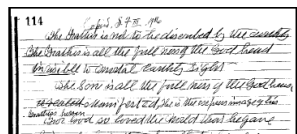 114
The Father is not to be described by the earthly
The Father is all the fullness of the God head
invisible to mortal earthly sight
The Son is all the fullness of the Godhead
manifested, He is the express image of his
Father's person
God so loved the world that he gave